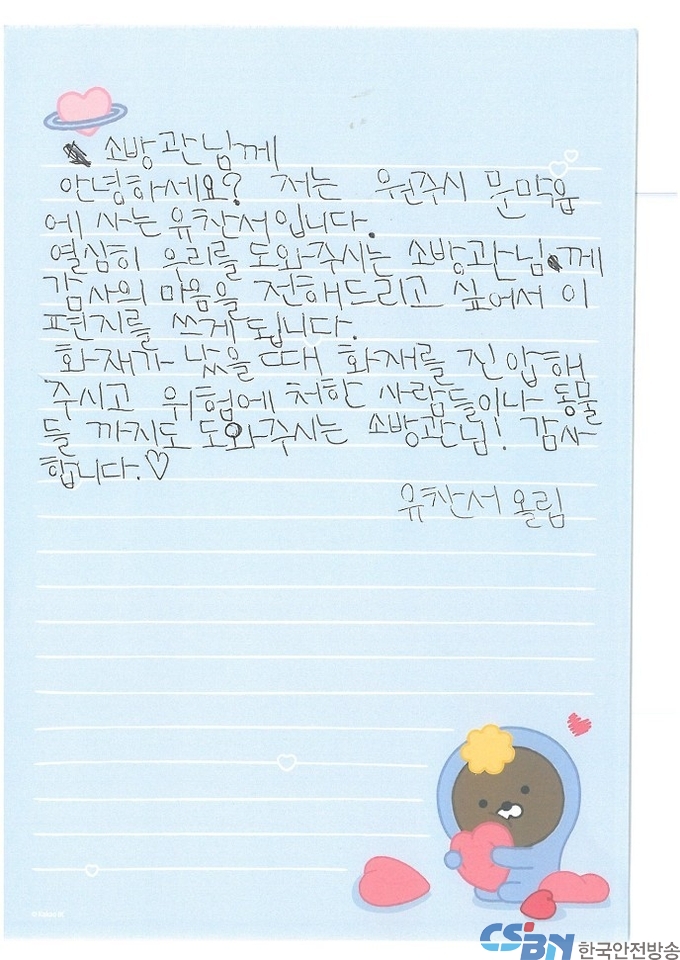 소방관님께
안녕하세요? 저는 원주시 문막읍
에 사는 유찬서입니다.
열심히 우리를 도와주시는 소방관님께
감사의 마음을 전해드리고 싶어서 이
편지를 쓰게 됩니다.
화재가 났을 때 화재를 진압해
주시고 위험에 처한 사람들이나 동물
들 까지도 도와주시는 소방관님! 감사
합니다.♡
유찬서 올림
CSBN 한국안전방송